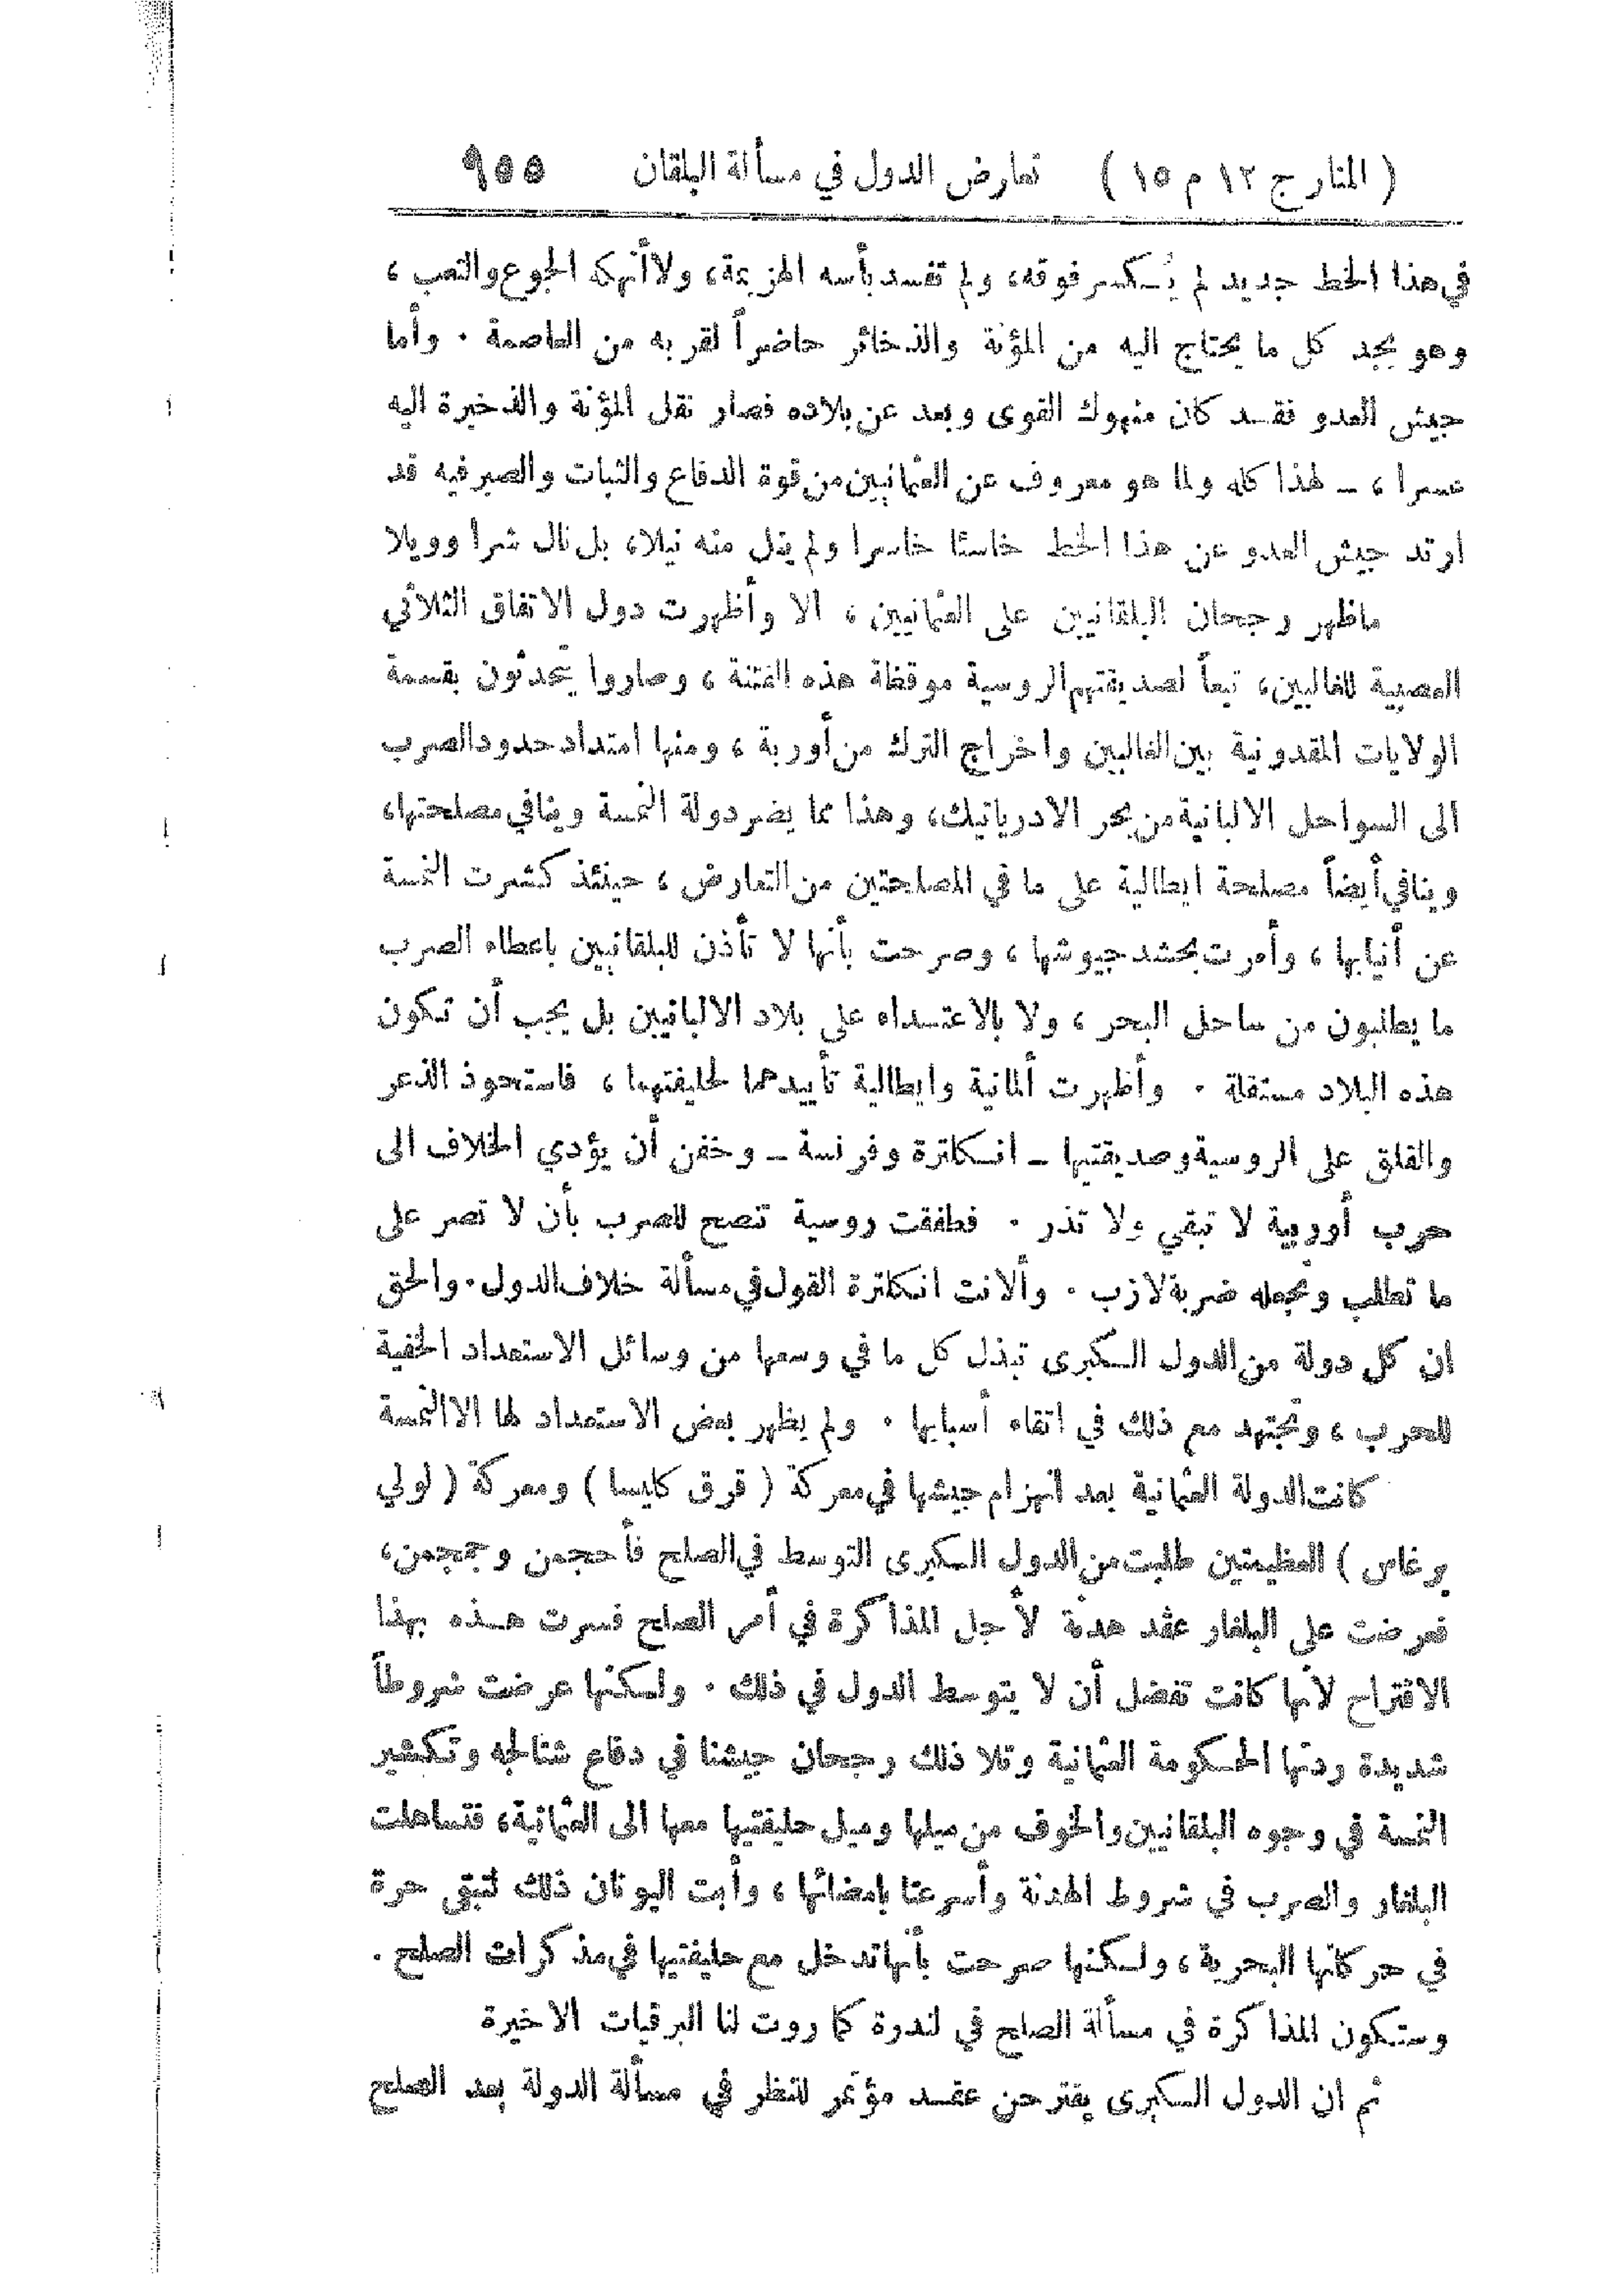 ( المنار ج ١٢ م ١٥ ) تعارض الدول في مسألة البلقان ٩٥٥
في هذا الخط جديد لم يُكسر فوقه، ولم تفسد بأسه الهزيمة، ولا أنهكه الجوع والتعب ،
وهو يجد كل ما يحتاج اليه من المؤنة والذخائر حاضراً لقربه من العاصمة . وأما
جيش العدو فقد كان منهوك القوى وبعد عن بلاده فصار نقل المؤنة والذخيرة اليه
عسرا ، ــ لهذا كله ولما هو معروف عن العثمانيين من قوة الدفاع والثبات والصبر فيه قد
ارتد جيش العدو عن هذا الخط خاسئا خاسرا ولم ينل منه نيلا، بل نال شرا وويلا
ماظهر رجحان البلقانيين على العثمانيين ، الا وأظهرت دول الاتفاق الثلاثي
العصبية للغالبين، تبعاً لصديقتهم الروسية موقظة هذه الفتنة ، وصاروا يتحدثون بقسمة
الولايات المقدونية بين الغالبين واخراج الترك من أوربة ، ومنها امتداد حدود الصرب
الى السواحل الالبانية من بحر الادرياتيك، وهذا مما يضر دولة النمسة وينافي مصلحتها،
وينافي أيضاً مصلحة ايطالية على ما في المصلحتين من التعارض ، حينئذ كشرت النمسة
عن أنيابها ، وأمرت بحشد جيوشها ، وصرحت بأنها لا تأذن للبلقانيين باعطاء الصرب
ما يطلبون من ساحل البحر ، ولا بالاعتداء على بلاد الالبانيين بل يجب أن تكون
هذه البلاد مستقلة . وأظهرت ألمانية وايطالية تأييدهما لحليفتهما ، فاستحوذ الذعر
والقلق على الروسية وصديقتيها ــ انكلترة وفرنسة ــ وخفن أن يؤدي الخلاف الى
حرب أوربية لا تبقي ولا تذر . فطفقت روسية تنصح للصرب بأن لا تصر على
ما تطلب وتجعله ضربة لازب . وألانت انكلترة القول في مسألة خلاف الدول. والحق
ان كل دولة من الدول الكبرى تبذل كل ما في وسعها من وسائل الاستعداد الخفية
للحرب ، وتجتهد مع ذلك في اتقاء أسبابها . ولم يظهر بعض الاستعداد لها الا النمسة
كانت الدولة العثمانية بعد انهزام جيشها في معركة ( قرق كليسا ) ومعركة ( لولي
برغاس ) العظيمتين طلبت من الدول الكبرى التوسط في الصلح فأحجمن وجمجمن،
فعرضت على البلغار عقد هدنة لأجل المذاكرة في أمر الصلح فسرت هذه بهذا
الاقتراح لأنها كانت تفضل أن لا يتوسط الدول في ذلك . ولكنها عرضت شروطاً
شديدة ردتها الحكومة العثمانية وتلا ذلك رجحان جيشنا في دفاع شتالجه وتكشير
النمسة في وجوه البلقانيين والخوف من ميلها وميل حليفتيها معها الى العثمانية، فتساهلت
البلغار والصرب في شروط الهدنة وأسرعتا بإمضائها ، وأبت اليونان ذلك لتبقى حرة
في حركاتها البحرية ، ولكنها صرحت بأنها تدخل مع حليفتيها في مذكرات الصلح .
وستكون المذاكرة في مسألة الصلح في لندرة كما روت لنا البرقيات الاخيرة
ثم ان الدول الكبرى يقترحن عقد مؤتمر للنظر في مسألة الدولة بعد الصلح